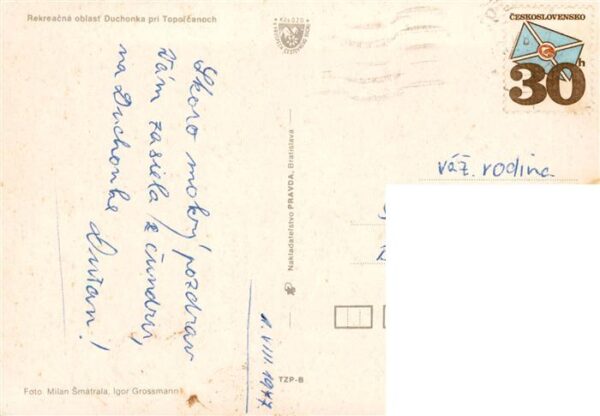 Rekreačná oblasť Duchonka pri Topoľčanoch
Skoro mokrý pozdrav
Vám zasiela z čundru
na Duchonke
Dušan!
1. VIII. 1977
Foto: Milan Šmátrala, Igor Grossmann
Nakladateľstvo PRAVDA, Bratislava
TZP-B
ČESKOSLOVENSKO
30h
váž. rodina